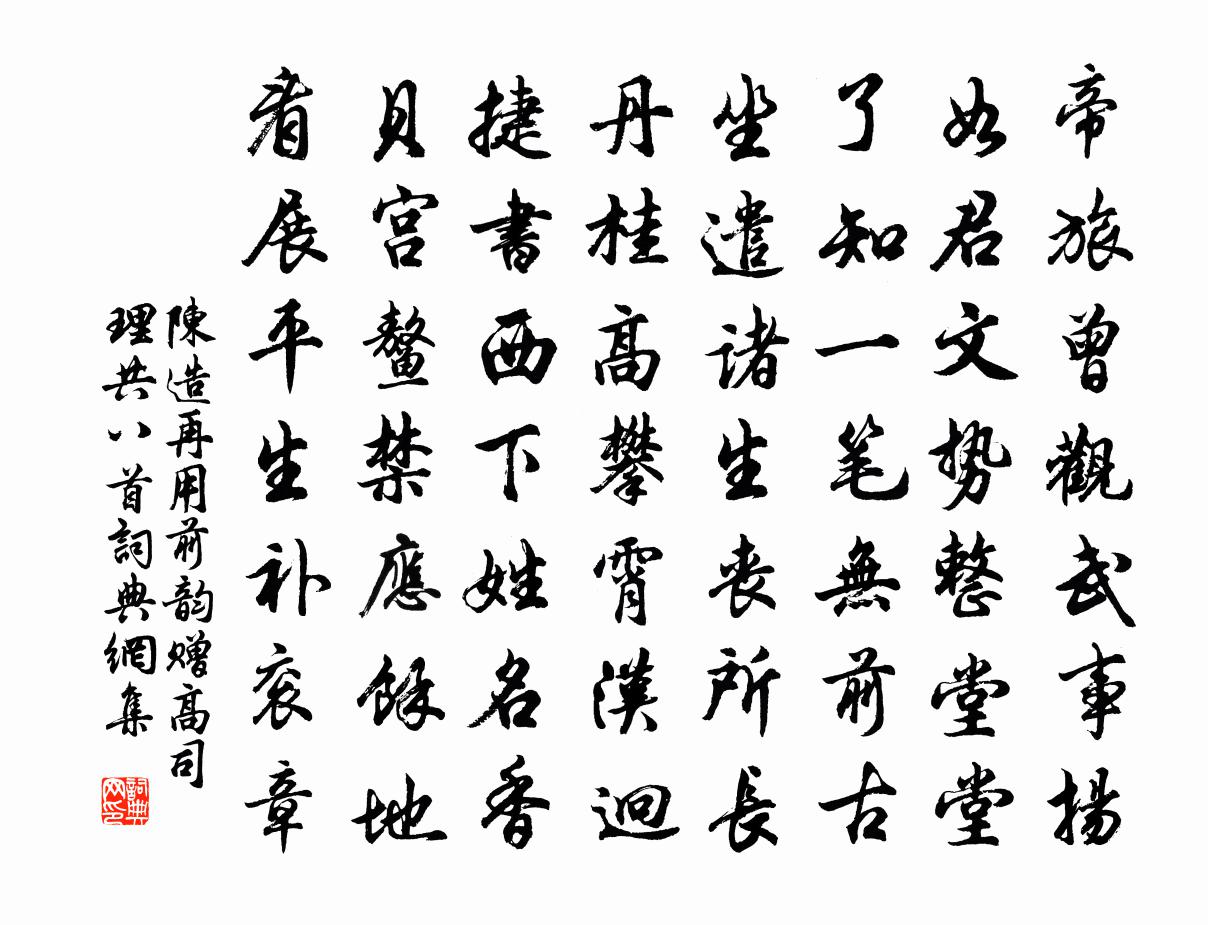 帝旅曾觀武事揚
如君文势整堂堂
了知一笔無前古
坐遣诸生丧所長
丹桂高攀霄漢迥
捷書西下姓名香
貝宫鳌禁應餘地
看展平生补衮章
陳造再用前韵赠高司
理共八首詞典網集
詞典网印